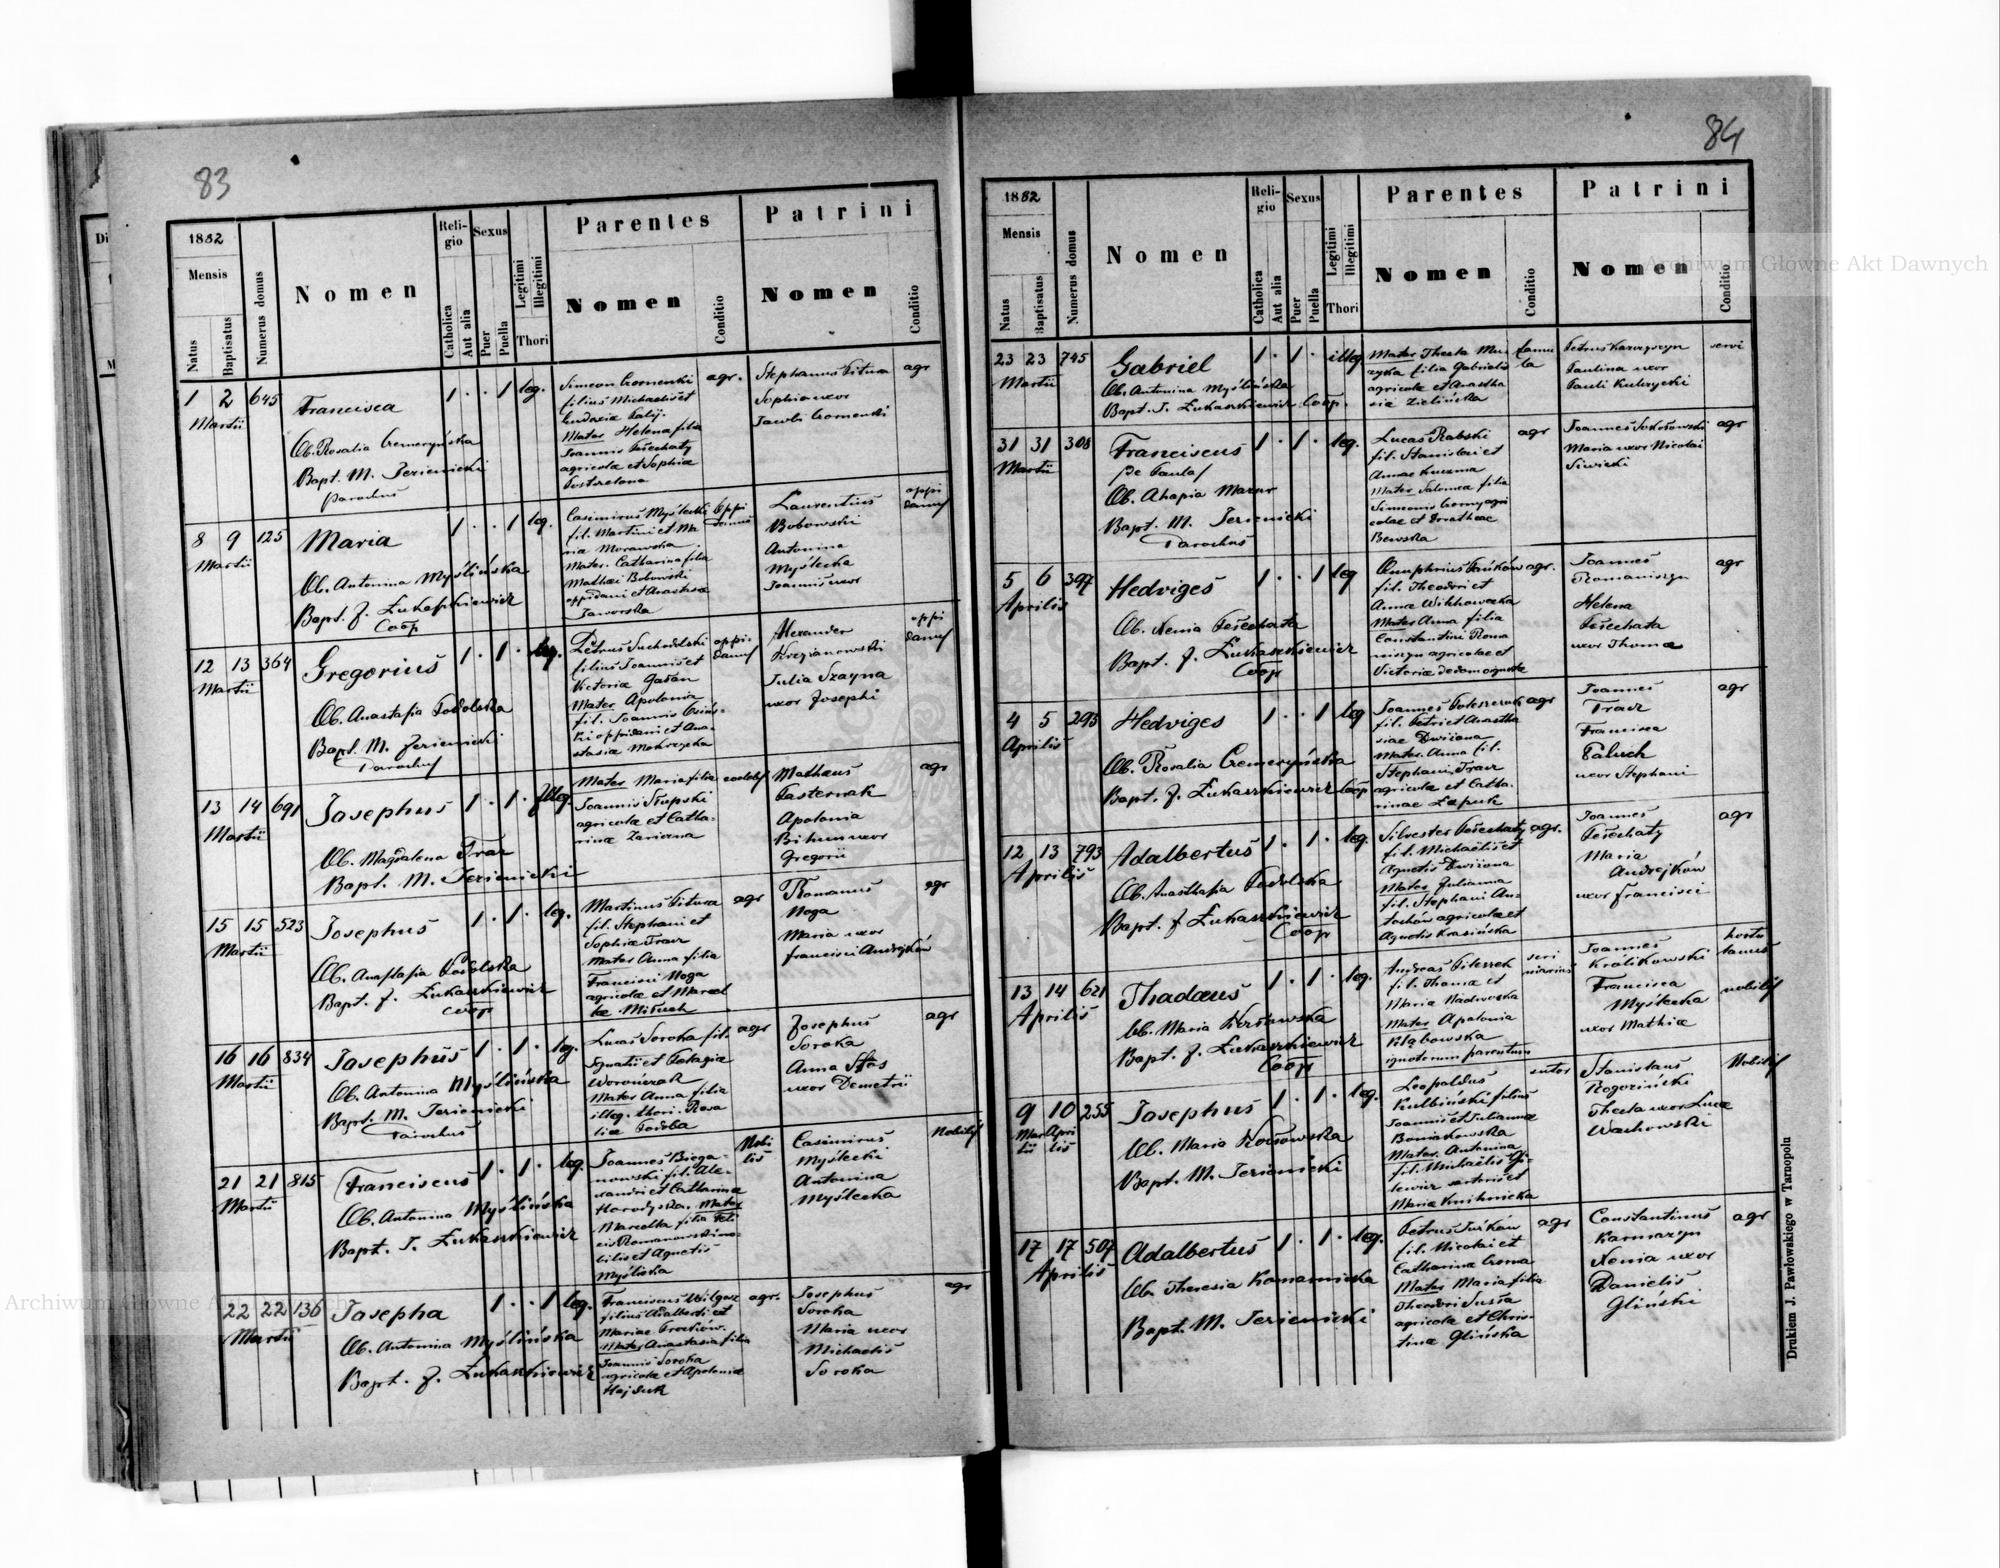 83
1882
Mensis
Natus
Baptisatus
Numerus domus
Nomen
Religio
Catholica
Aut alia
Sexus
Puer
Puella
Legitimi
Illegitimi
Thori
Parentes
Nomen
Conditio
Patrini
Nomen
Conditio
1 2 645
Martii
Francisca
Ob. Rosalia Cremeryńska
Bapt. M. Jezienicki
parochus
1 . . 1 leg.
filius Michaelis et
Mater Helena filia
Joannis Pełechaty
agricolæ et Sophiæ
agr.
Stephanus Pitura
Sophia uxor
Jacobi
agr
8 9 125
Martii
Maria
Ob. Antonina Myślińska
Bapt. J. Łukaszkiewicz
Coop
1 . . 1 leg.
Casimirus Myślecki
fil. Martini et Ma
ria Morawska
Mater Catharina filia
Mathæi Bobowski
oppidani et Anastasiæ
Jaworska
oppi
danus
Laurentius
Bobowski
Antonina
Myślecka
Joannis uxor
oppi
danus
12 13 364
Martii
Gregorius
Ob. Anastasia Podolska
Bapt. M. Jezienicki
Parochus
1 . 1 . leg.
Petrus Suchodolski
filius Joannis et
Victoria
Mater Apolonia
fil. Joannis
ki oppidani et Ana-
stasia
oppi-
danus
Alexander
Krzyianowski
Julia Szayna
uxor Josephi
oppi
danus
13 14 691
Martii
Josephus
Ob. Magdalena Tracz
Bapt. M. Jezienicki
1 . 1 . Illeg.
Mater Maria filia
Joannis Słupski
agricolæ et Catha-
rinæ
Mathæus
Pasternak
Apolonia
Bihun uxor
Gregorii
agr
15 15 523
Martii
Josephus
Ob. Anastasia Podolska
Bapt. J. Łukaszkiewicz
coop
1 . 1 . leg.
Martinus Pitura
fil. Stephani et
Sophiæ Tracz
Mater Anna filia
Francisci Noga
agricolæ et Marcel
læ
agr
Romanus
Noga
Maria uxor
Francisci Andrejków
agr
16 16 834
Martii
Josephus
Ob. Antonina Myślińska
Bapt. M. Jezienicki
Parochus
1 . 1 . leg.
Lucas Soroka fil.
Ignatii et Pelagia
Worończak
Mater Anna filia
illeg. thori Rosa
liæ
agr
Josephus
Soroka
Anna
uxor Demetrii
agr
21 21 815
Martii
Franciscus
Ob. Antonina Myślińska
Bapt. J. Łukaszkiewicz
1 . 1 . leg.
Joannes Biega-
nowski fil. Ale-
xandri et Catharina
Horodyska. Mater
Marcella filia Feli
cis Romanowski no-
bilis et Agnetis
Nobi
lis
Casimirus
Myślecki
Antonina
Myślecka
Nobilis
22 22 136
Martii
Josepha
Ob. Antonina Myślińska
Bapt. J. Łukaszkiewicz
1 . . 1 leg.
Franciscus Wilgosz
filius Adalberti et
Mariæ Proków.
Mater Anastasia filia
Joannis Soroka
agricolæ et Apolonia
Hajduk
agr.
Josephus
Soroka
Maria uxor
Michaelis
Soroka
agr
84
1882
Mensis
Natus
Baptisatus
Numerus domus
Nomen
Religio
Catholica
Aut alia
Sexus
Puer
Puella
Legitimi
Illegitimi
Thori
Parentes
Nomen
Conditio
Patrini
Nomen
Conditio
23 23 745
Martii
Gabriel
Ob. Antonina Myślińska
Bapt. J. Łukaszkiewicz Coop.
1 . 1 . illeg.
Mater Thecla Mu
zyka filia Gabrielis
agricolæ et Anasta
siæ Zielińska
famu
la
Petrus
Paulina uxor
Pauli Kulczycki
servi
31 31 308
Martii
Franciscus
de Paula
Ob. Ahapia Mazur
Bapt. M. Jezienicki
Parochus
1 . 1 . leg.
Lucas Rabski
fil. Stanislai et
Annæ Kuzma
Mater Salomea filia
Simeonis
colæ et Dorotheæ
agr
Joannes Sokołowski
Maria uxor Nicolai
Siwicki
agr
5 6 397
Aprilis
Hedviges
Ob. Xenia Pełechata
Bapt. J. Łukaszkiewicz
Coop
1 . . 1 leg
Onuphrius
fil. Theodori et
Annæ
Mater Anna filia
Constantini Roma
niszyn agricolæ et
Victoria
agr.
Joannes
Romaniszyn
Helena
Pełechata
uxor Thomæ
agr
4 5 293
Aprilis
Hedviges
Ob. Rosalia Cremeryńska
Bapt. J. Łukaszkiewicz Coop
1 . . 1 leg
Joannes
fil. Petri et Anasta
siæ
Mater Anna fil.
Stephani Tracz
agricolæ et Catha-
rinæ Łapuk
agr
Joannes
Tracz
Francisca
Paluch
uxor Stephani
agr
12 13 793
Aprilis
Adalbertus
Ob. Anasthasia Podolska
Bapt. J. Łukaszkiewicz
Coop
1 . 1 . leg.
Silvester Pełechaty
fil. Michaëlis et
Agnetis
Mater Julianna
fil. Stephani An-
tochów agricolæ et
Agnetis Krasińska
agr.
Joannes
Pełechaty
Maria
Andrejków
uxor Francisci
agr
13 14 621
Aprilis
Thadæus
Ob. Maria
Bapt. J. Łukaszkiewicz
Coop
1 . 1 . leg.
Andreas
fil. Thomæ et
Maria
Mater Apolonia
Kłąbowska
ignotorum parentum
Joannes
Królikowski
Francisca
Myślecka
uxor Mathiæ
hortu
lanus
nobilis
9 10 255
Mar Apri
tii lis
Josephus
Ob. Maria
Bapt. M. Jezienicki
1 . 1 . leg.
Leopoldus
Kulbiński filius
Joannis et Juliannæ
Boniakowska
Mater Antonina
fil. Michaëlis
sartoris et
Maria Knihnicka
sutor
Stanislaus
Rogoziński
Thecla uxor Lucæ
Wachowski
Nobilis
17 17 507
Aprilis
Adalbertus
Ob. Theresia
Bapt. M. Jezienicki
1 . 1 . leg.
Petrus
fil. Nicolai et
Catharina
Mater Maria filia
Theodori
agricolæ et Chris-
tinæ Glińska
agr
Constantinus
Karmazyn
Xenia uxor
Danielis
Gliński
agr
Drukiem J. Pawłowskiego w Tarnopolu
Archiwum Główne Akt Dawnych
Archiwum Główne Akt Dawnych